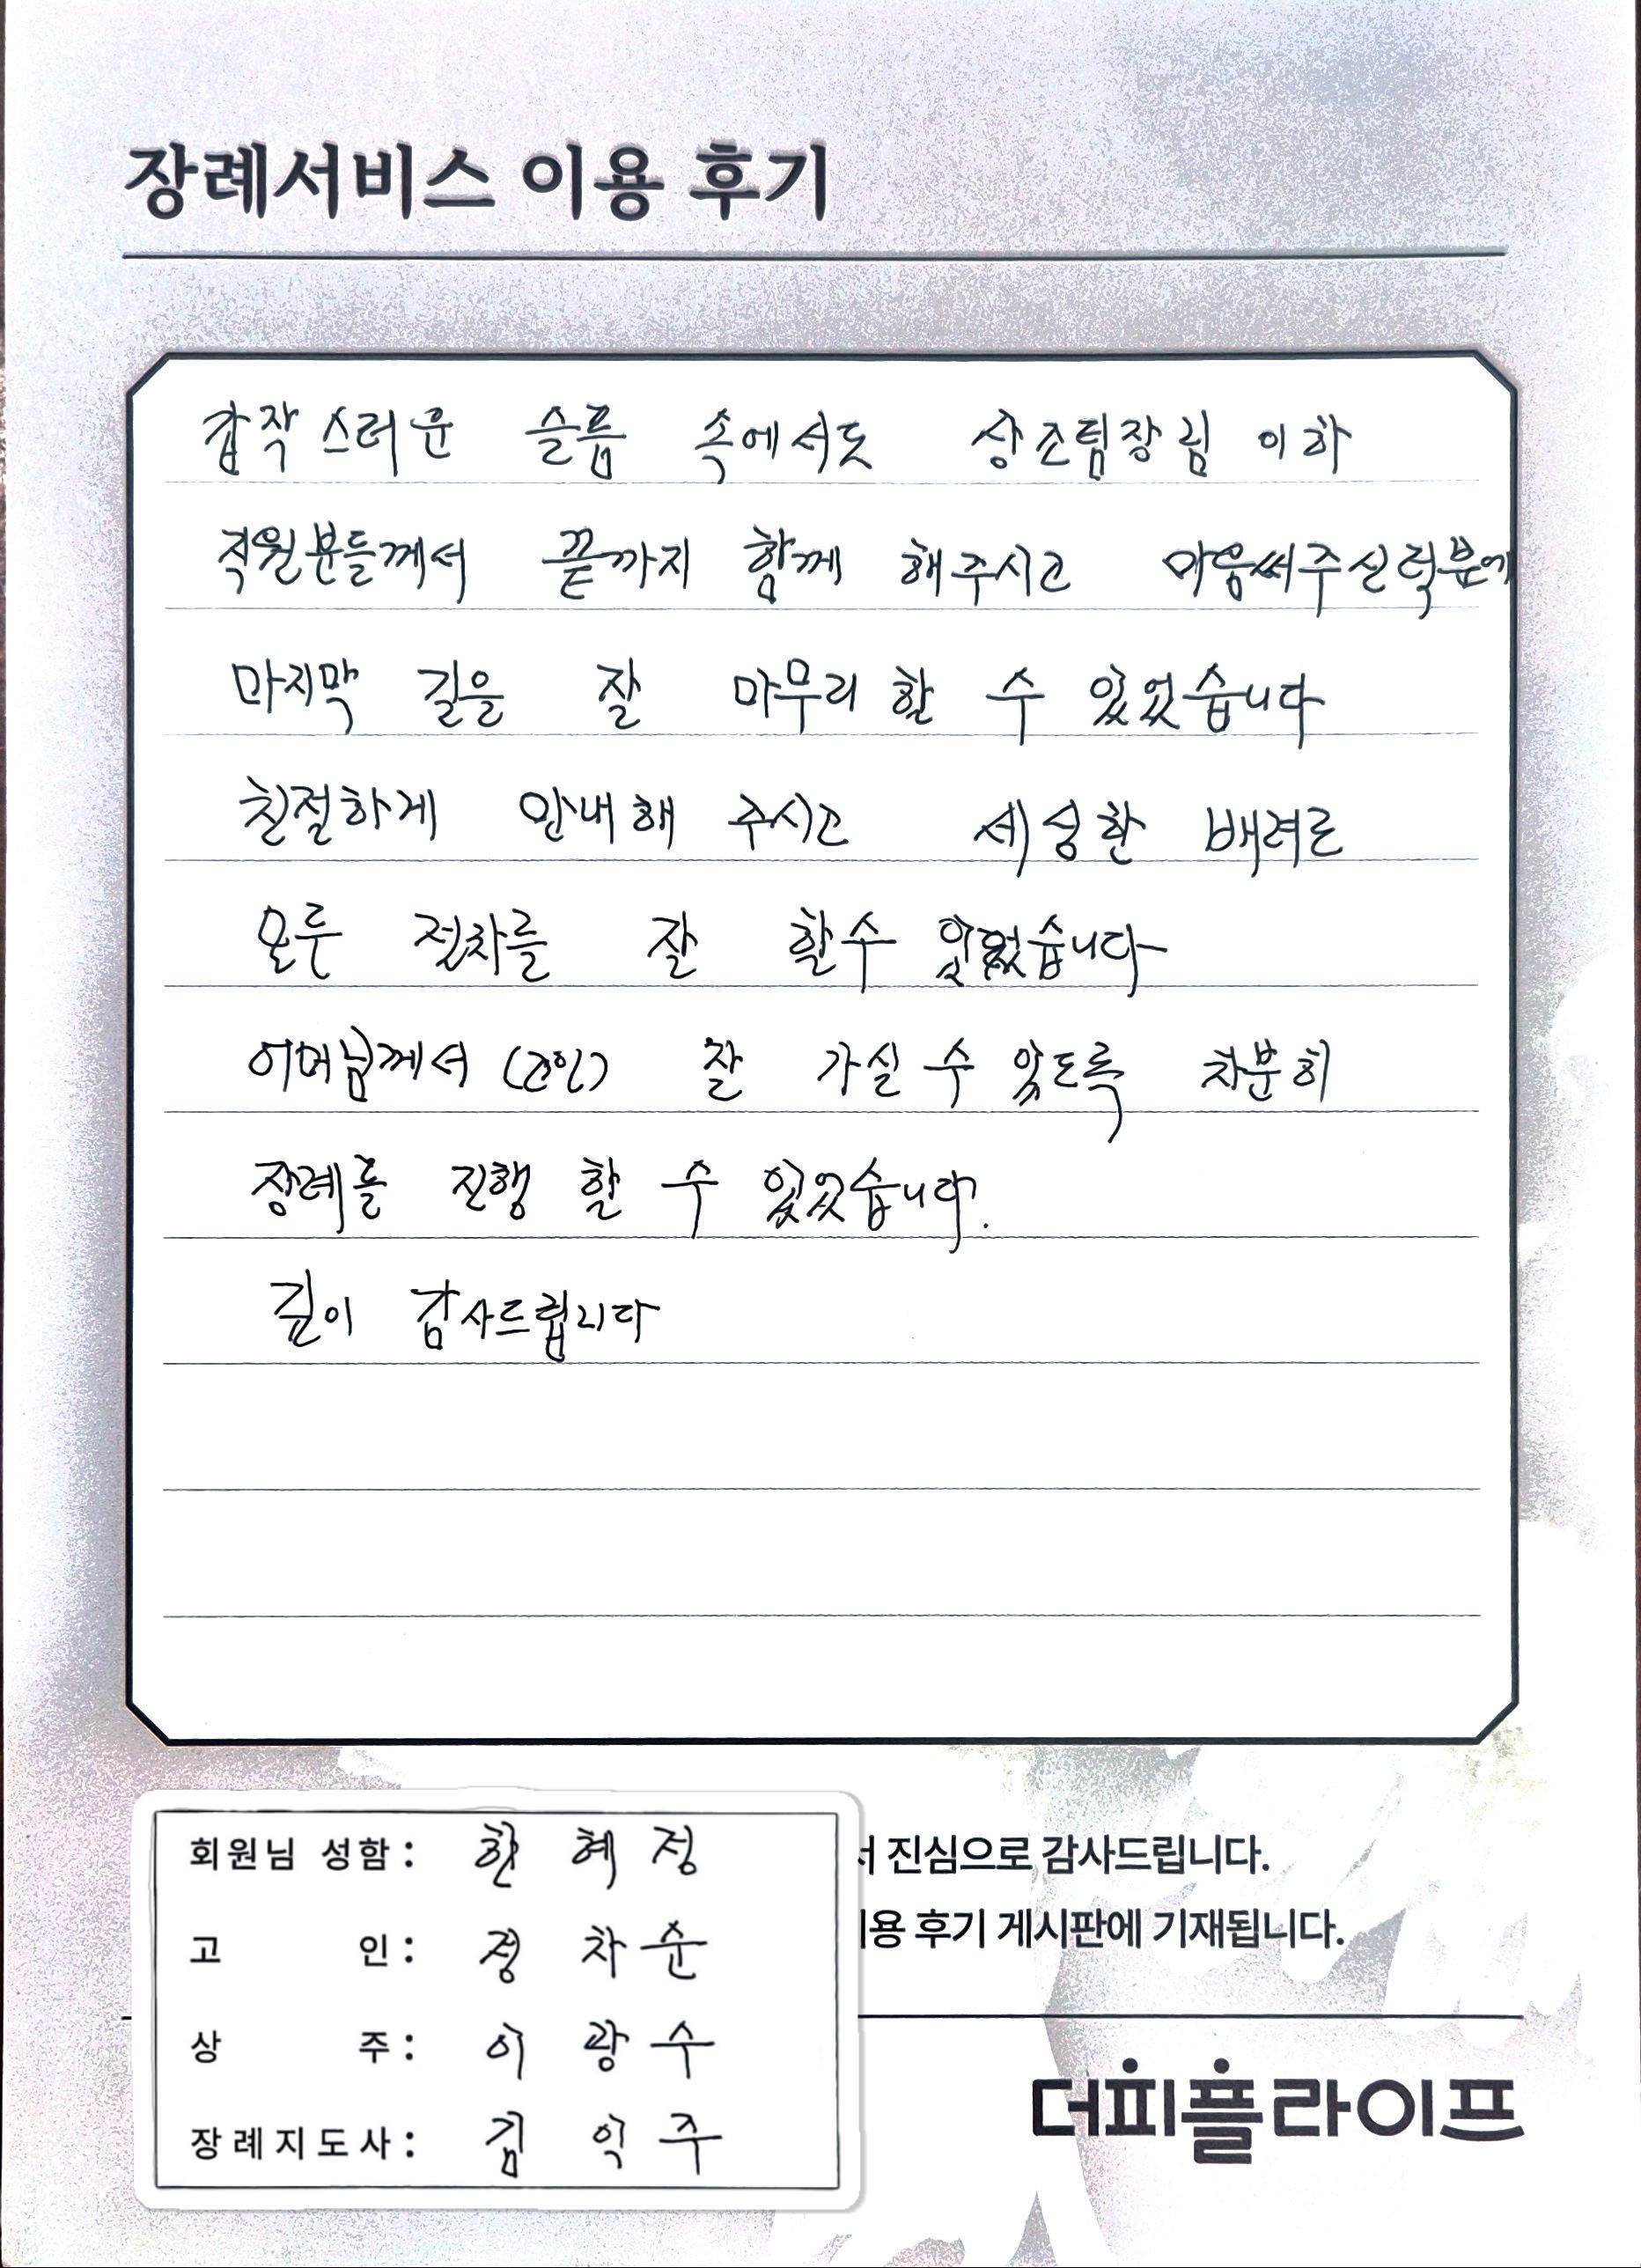 장례서비스 이용 후기
갑작스러운 슬픔 속에서도 상조팀장님 이하
직원분들께서 끝까지 함께 해주시고 마음써주신덕분에
마지막 길을 잘 마무리 할 수 있었습니다
친절하게 안내해 주시고 세심한 배려로
모두 절차를 잘 할수 있었습니다
어머님께서 (고인) 잘 가실 수 있도록 차분히
장례를 진행 할 수 있었습니다.
깊이 감사드립니다
회원님 성함: 한혜정
고 인: 정차순
상 주: 이광수
장례지도사: 김익주
서 진심으로 감사드립니다.
이용 후기 게시판에 기재됩니다.
더피플라이프